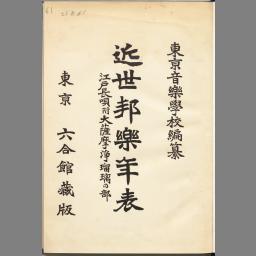 東京音樂學校編纂
近世邦樂年表
江戸長唄附大薩摩浄瑠璃の部
東京 六合館藏版